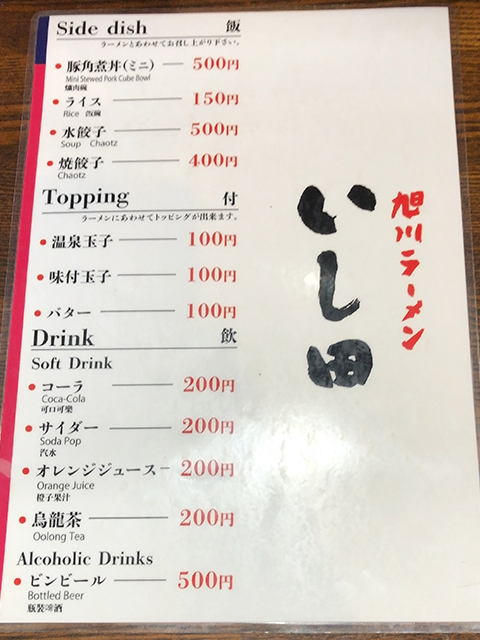 Side dish 飯
ラーメンとあわせてお召し上がり下さい。
豚角煮丼(ミニ) 500円
Mini Stewed Pork Cube Bowl
爐肉碗
ライス 150円
Rice 飯碗
水餃子 500円
Soup Chaotz
焼餃子 400円
Chaotz
Topping 付
ラーメンにあわせてトッピングが出来ます。
温泉玉子 100円
味付玉子 100円
バター 100円
Drink 飲
Soft Drink
コーラ 200円
Coca-Cola
可口可樂
サイダー 200円
Soda Pop
汽水
オレンジジュース 200円
Orange Juice
橙子果汁
烏龍茶 200円
Oolong Tea
Alcoholic Drinks
ビンビール 500円
Bottled Beer
瓶裝啤酒
旭川ラーメン
いし田